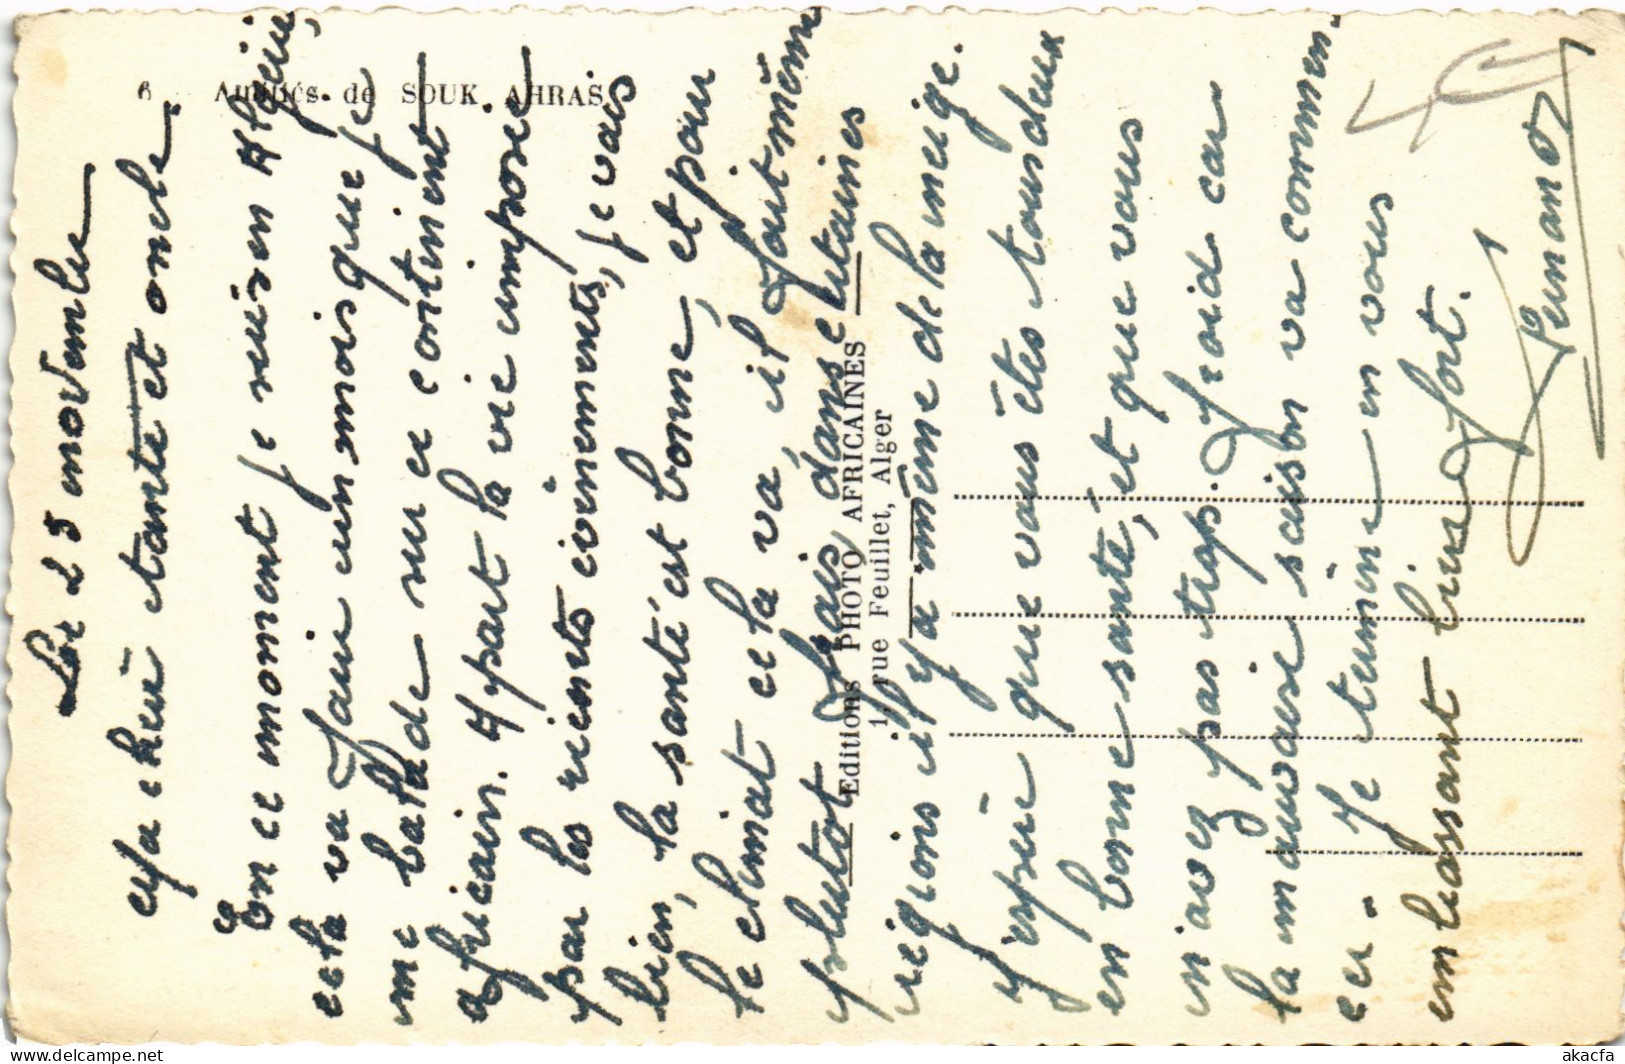 6 Amitiés de SOUK AHRAS
Le 25 novembre
Ma chère tante et oncle.
En ce moment je suis en Algérie,
cela va faire un mois que je
me balade sur ce continent
africain. A part la vie imposée
par les récents évènements, je vais
bien, la santé est bonne, et pour
le climat cela va, il fait même
plutot frais, dans certaines
régions il y a même de la neige.
J'espère que vous êtes tous deux
en bonne santé, et que vous
n'avez pas trop froid car
la mauvaise saison va commen-
cer. Je termine en vous
embrassant bien fort.
Editions PHOTO AFRICAINES
1, rue Feuillet, Alger
akacfa